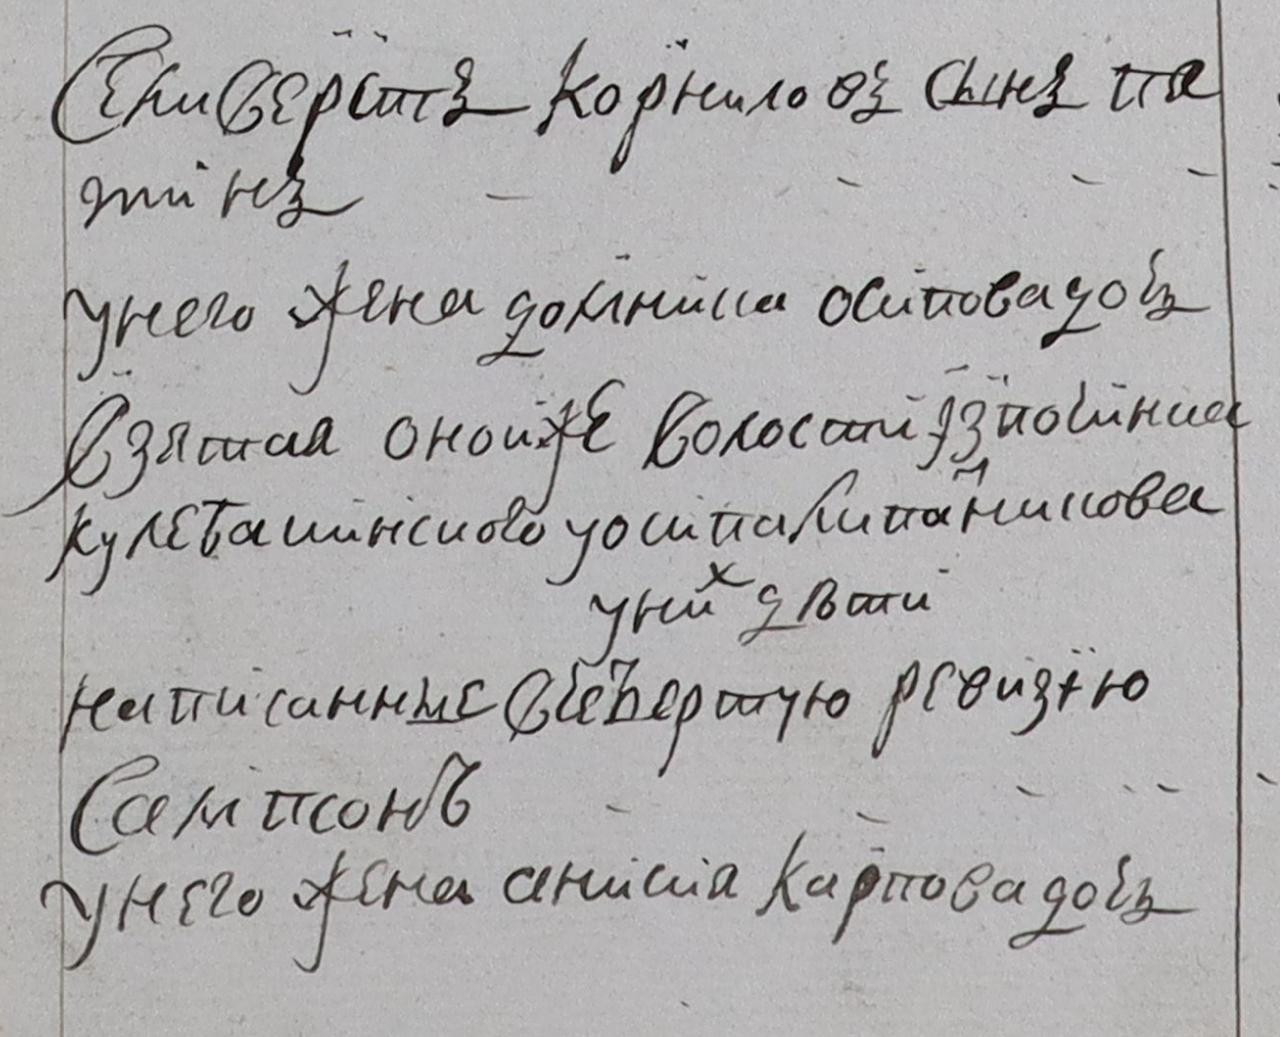 Селиверстъ Корниловъ сынъ па
тинъ
унего жена домника осипова дочь
взятая оной же волости іспочинка
кулебакинского уосипа липаникова
уних дѣти
написанные вчетвертую ревизїю
Сампсонъ
унего жена анисия карпова дочь